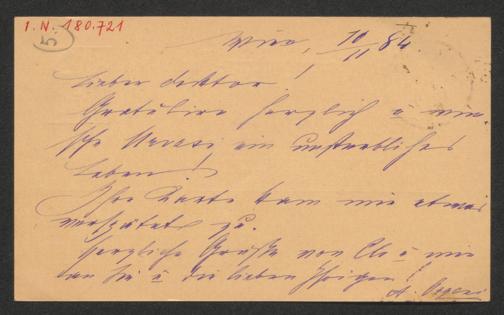 I. N. 180.721
5
Wien, 10/11 84.
Lieber Doktor!
Gratulire herzlich u wün-
sche ein unsterbliches
Leben!
Ihre Karte kam mir etwas
verspätet zu.
Herzliche Grüße von u mir
an Sie u die lieben Ihrigen!
A.